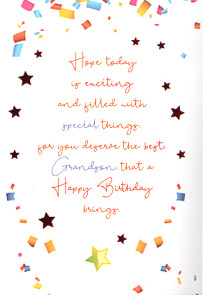 Hope today
is exciting
and filled with
special things.
for you deserve the best,
Grandson, that a
Happy Birthday
brings.